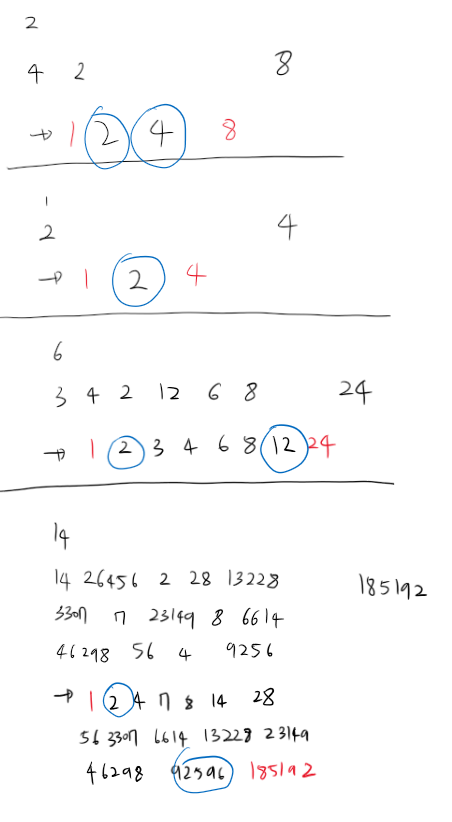 2
4 2 8
→ 1 2 4 8
1
2 4
→ 1 2 4
6
3 4 2 12 6 8 24
→ 1 2 3 4 6 8 12 24
14
14 26456 2 28 13228 185192
3307 7 23149 8 6614
46298 56 4 9256
→ 1 2 4 7 8 14 28
56 3307 6614 13228 23149
46298 92596 185192